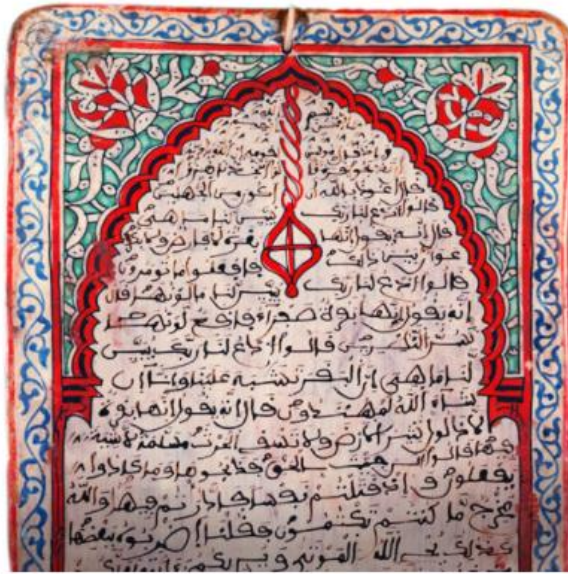 قال اعوذ بالله ان اكون من الجهلين
قالوا ادع لنا ربك يبين لنا ما هي
قال انه يقول انها بقرة لا فارض ولا بكر
عوان بين ذلك فافعلوا ما تومرون
قالوا ادع لنا ربك يبين لنا ما لونها قال
انه يقول انها بقرة صفراء فاقع لونها
تسر النظرين قالوا ادع لنا ربك يبين
لنا ما هي ان البقر تشبه علينا وانا ان
شاء الله لمهتدون قال انه يقول انها بقرة
لا ذلول تثير الارض ولا تسقي الحرث مسلمة لا شية
فيها قالوا الن جئت بالحق فذبحوها وما كادوا
يفعلون واذ قتلتم نفسا فادارتم فيها والله
مخرج ما كنتم تكتمون فقلنا اضربوه ببعضها
كذلك يحي الله الموتى ويريكم